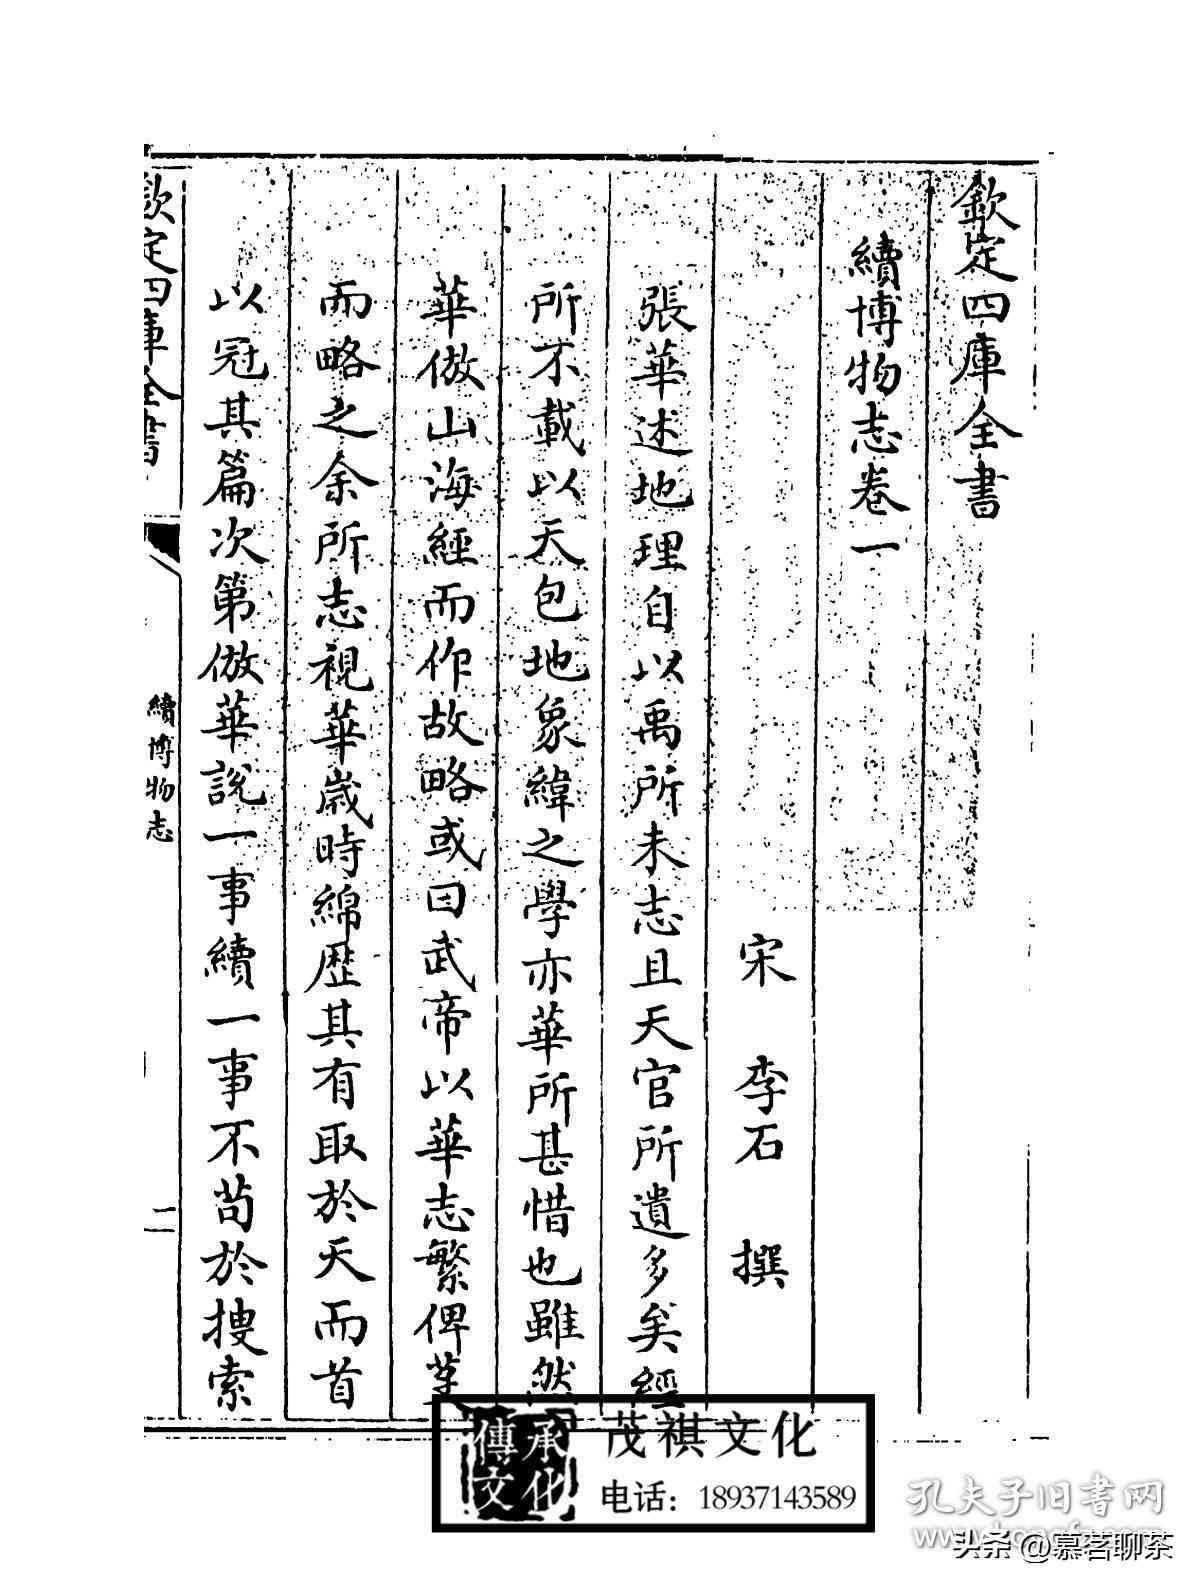 欽定四庫全書
續博物志卷一
宋　李石　撰
張華述地理自以禹所未志且天官所遺多矣經
所不載以天包地象緯之學亦華所甚惜也雖然
華倣山海經而作故略或曰武帝以華志繁俾芟
而略之余所志視華歲時綿歷其有取於天而首
以冠其篇次第倣華說一事續一事不苟於搜索
欽定四庫全書
續博物志
二
傳承
文化
茂祺文化
电话：18937143589
孔夫子旧书网
头条 @慕茗聊茶